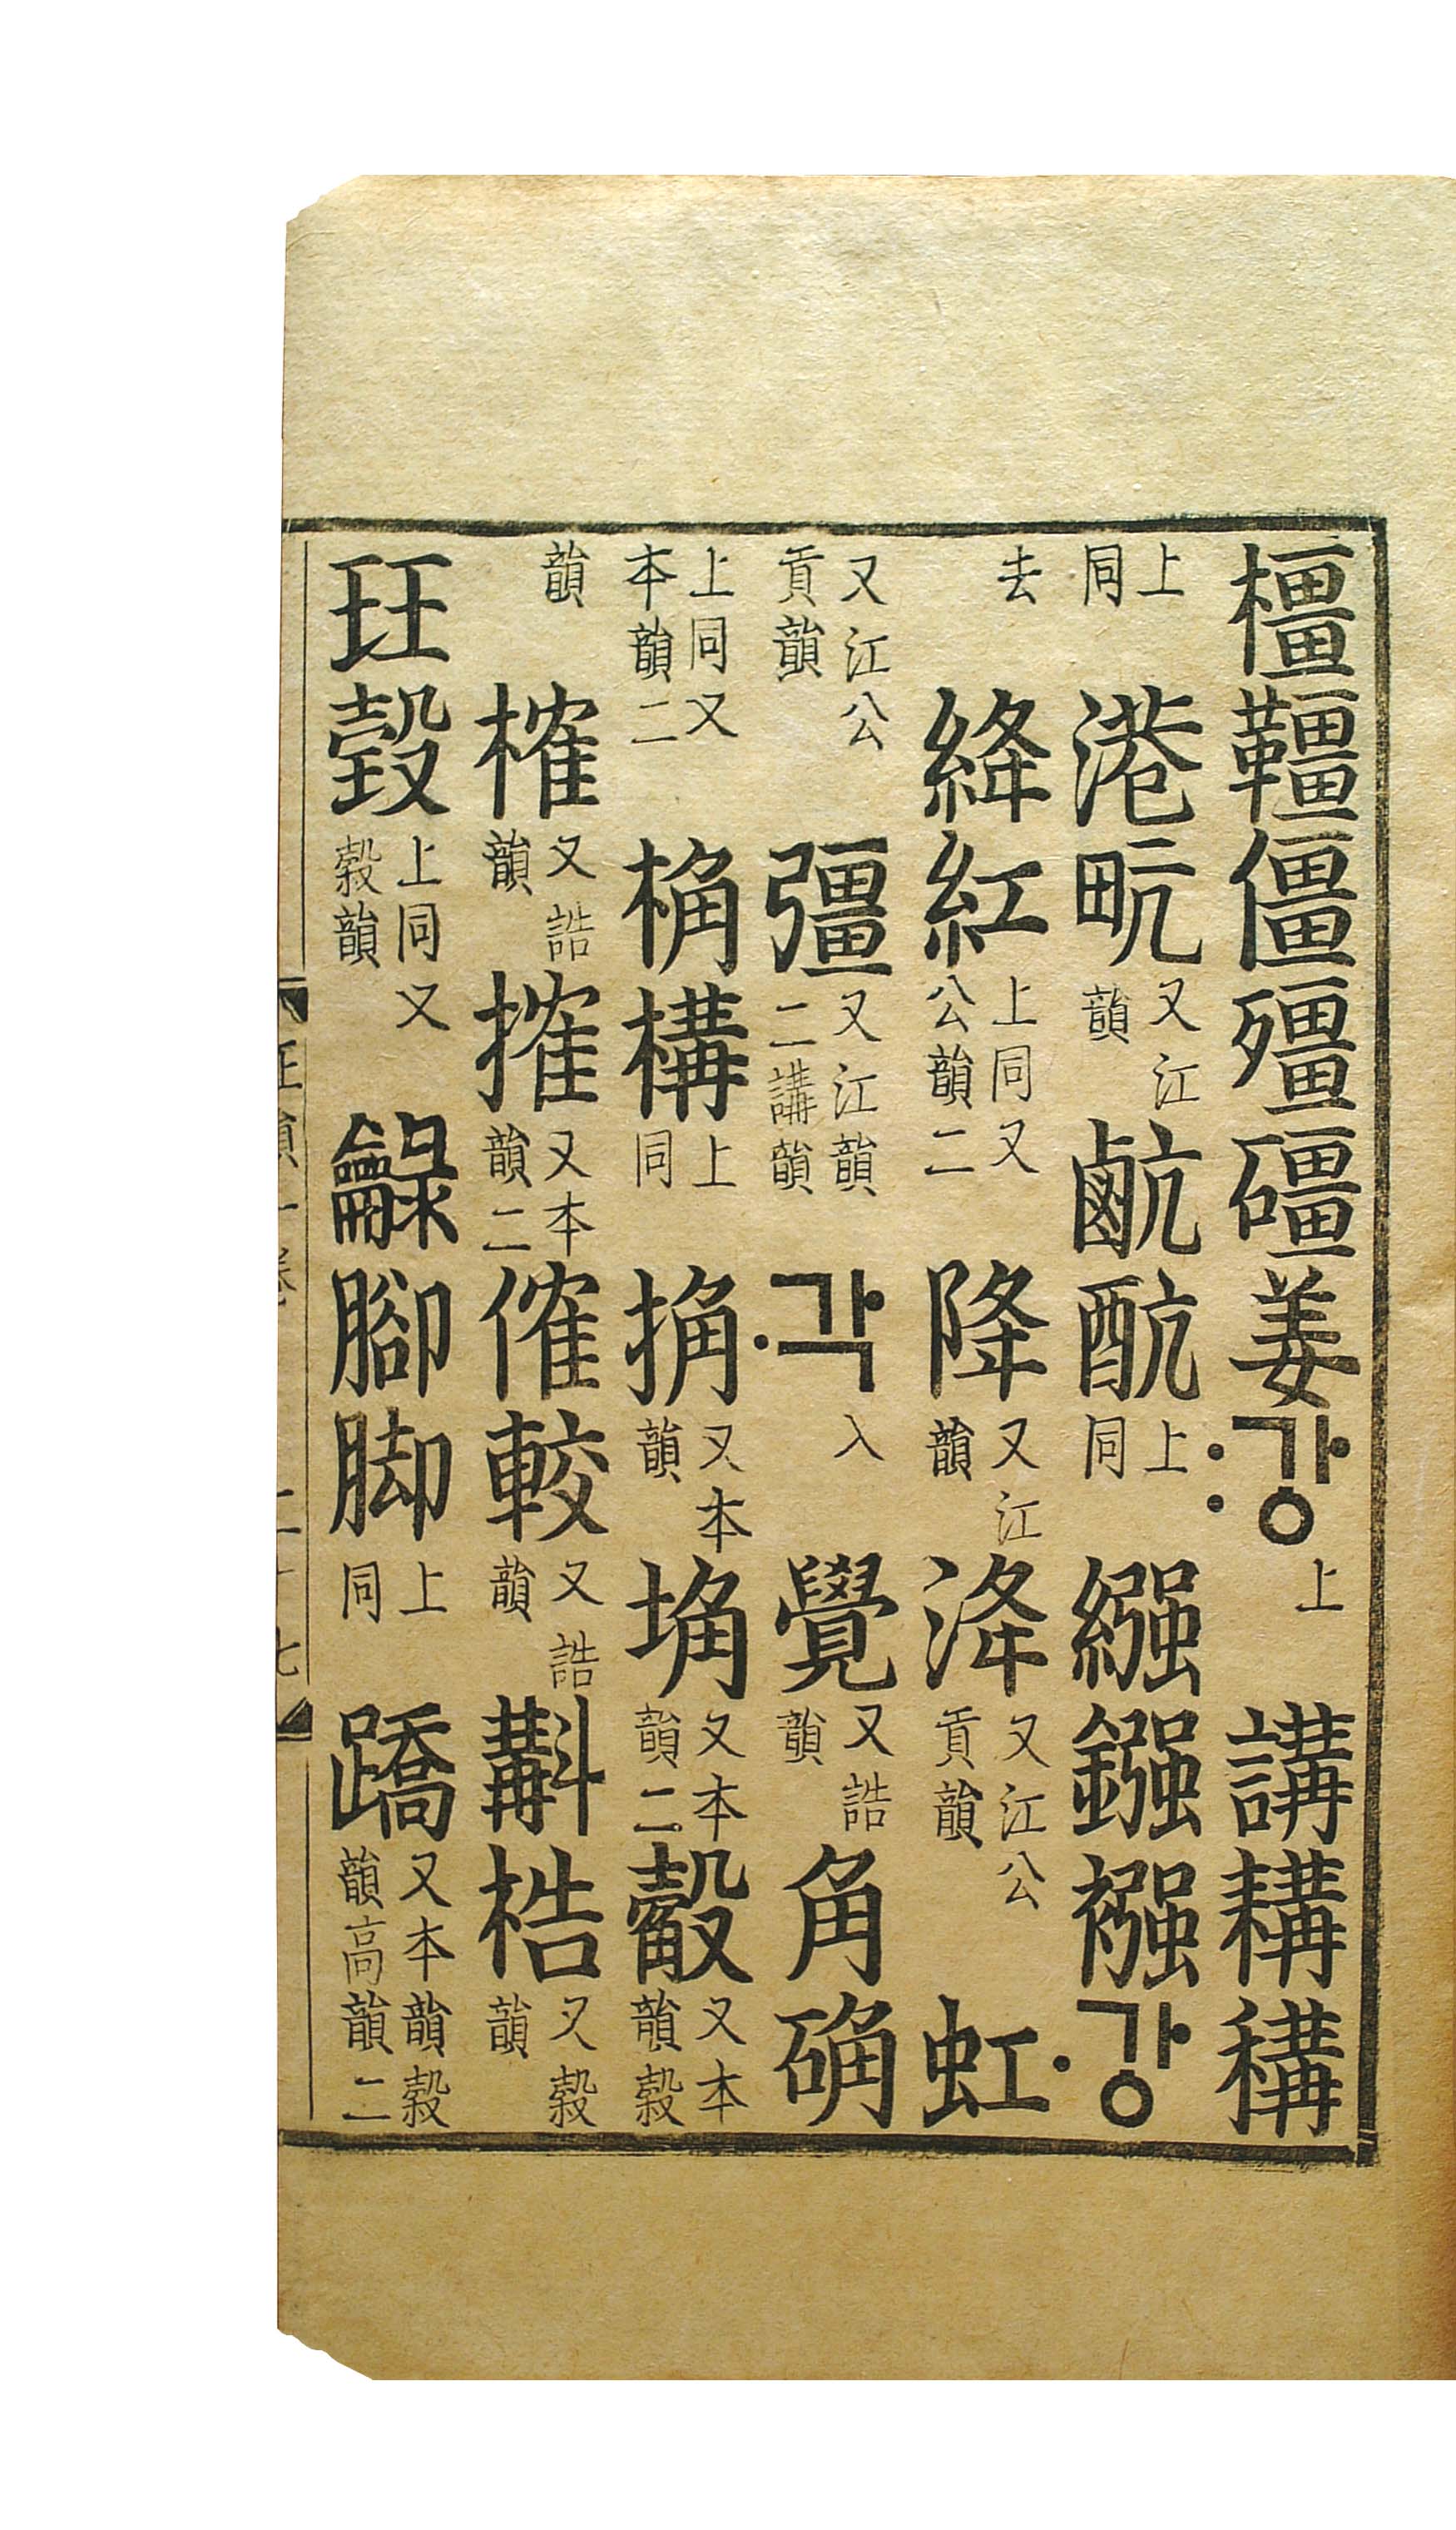 橿韁僵殭礓姜:강上講耩
上同港㽘又江韻䴚上同繦鏹襁·강
去絳紅上同又公韻二降又江韻洚又江公貢韻虹
又江公貢韻彊又江韻二講韻·각入覺又誥韻角确
上同又本韻二桷構上同捔又本韻埆又本韻二觳又本韻穀
韻榷又誥韻搉又本韻二傕較又誥韻斠梏又穀韻
玨瑴上同又穀韻龣腳脚上同蹻又本韻穀韻高韻二